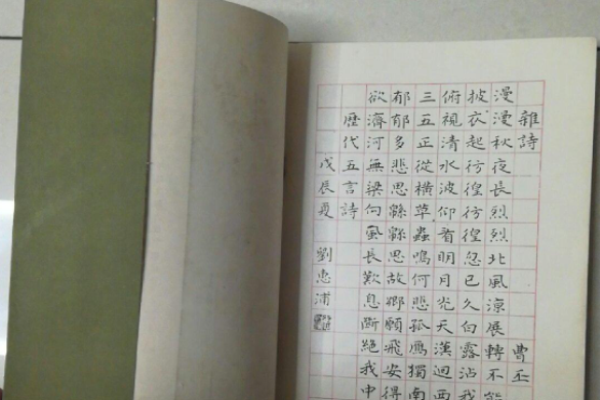 雜詩 曹丕
漫漫秋夜長烈烈北風涼展轉不能
披衣起彷徨彷徨忽已久白露沾我
俯視清水波仰看明月光天漢迴西
三五正從橫草蟲鳴何悲孤鴈獨南
郁郁多悲思緜緜思故鄉願飛安得
欲濟河無梁向風長歎息斷絕我中
歷代五言詩
戊辰夏 劉惠浦